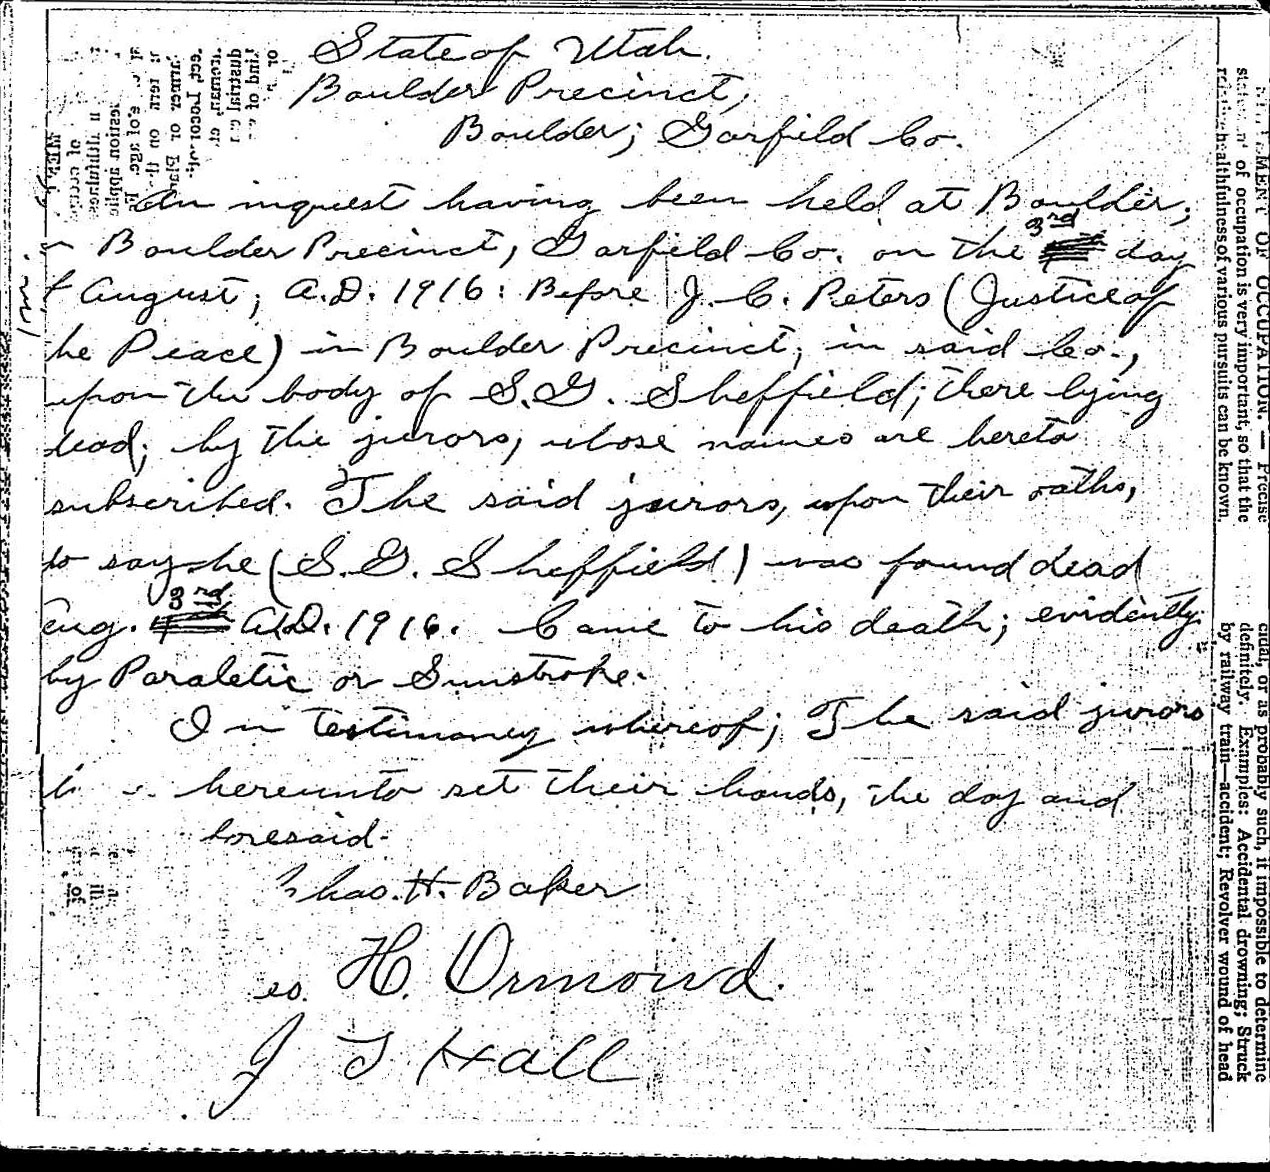 State of Utah.
Boulder Precinct,
Boulder; Garfield Co.
An inquest having been held at Boulder;
Boulder Precinct, Garfield Co. on the 3rd day
August, A.D. 1916: Before J. C. Peters (Justice of
he Peace) in Boulder Precinct, in said Co.,
upon the body of S.G. Sheffield; there lying
dead; by the jurors, whose names are hereto
subscribed. The said jurors, upon their oaths,
to say he (S.G. Sheffield) was found dead
Aug. 3rd A.D. 1916. Came to his death; evidently
by Paraletic or Sunstroke.
In testimoney whereof; The said jurors
hereunto set their hands, the day and
foresaid.
Chas. H. Baker
H. Ormond.
J T Hall
MENT OF OCCUPATION. — Precise
of occupation is very important, so that the
healthfulness of various pursuits can be known.
cidal, or as probably such, if impossible to determine
definitely. Examples: Accidental drowning; Struck
by railway train—accident; Revolver wound of head